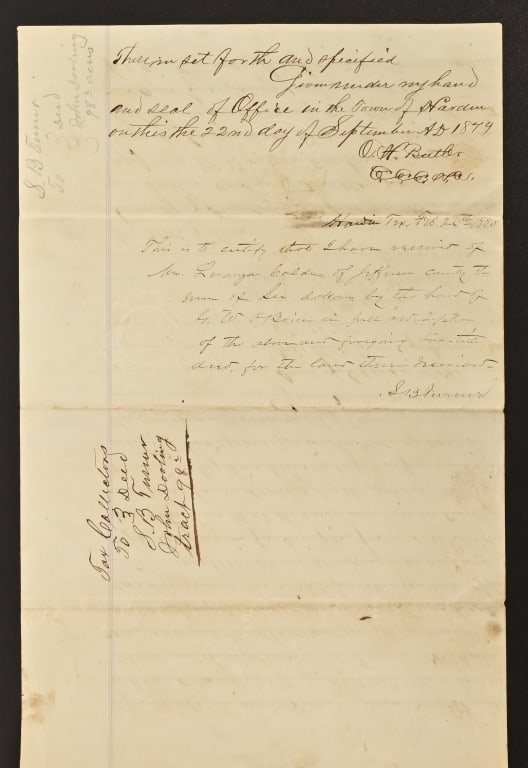 Therein set forth and specified
Given under my hand
and seal of Office in the town of Hardin
on this the 22nd day of September AD 1879
A. H. Butler
Hardin Tex, Feb. 26th, 1880
This is to certify that I have received of
Mr. of Jefferson county the
sum of Six dollars by the hand of
G. W. O'Brien in full redemption
of the above and foregoing
deed, for the land therein described
S B Turner
Tax Collectors
To } Deed
S. B. Turner
John Dooling
tract 98
S B Turner
To } Deed
John Dooling
98 3 acres